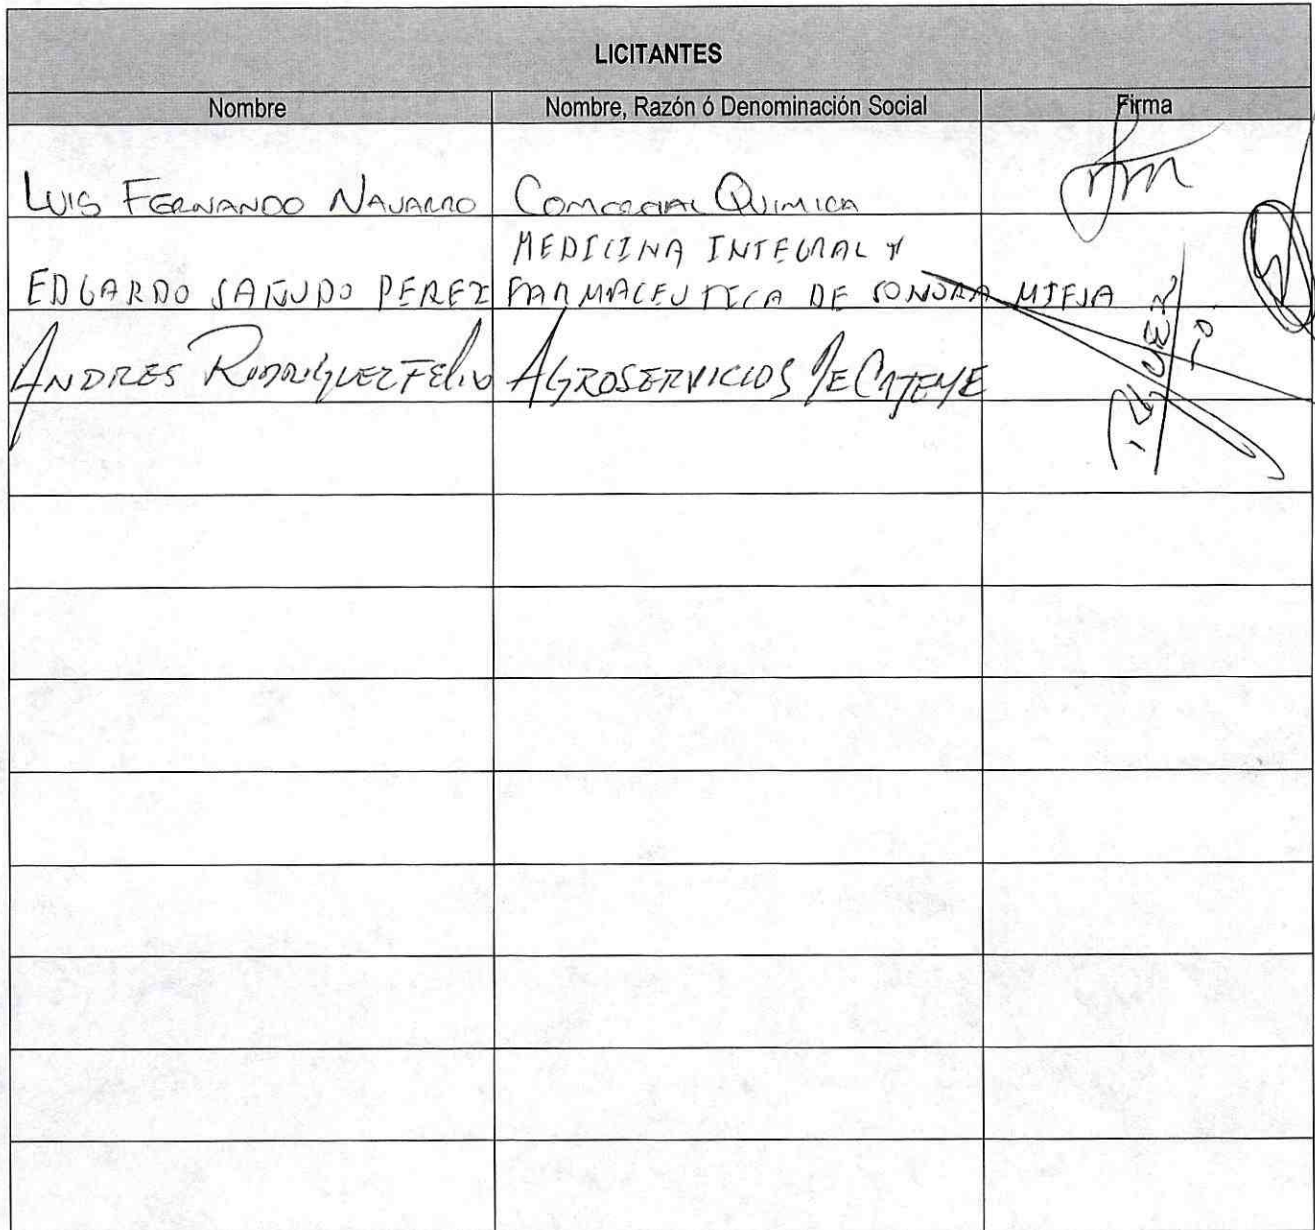 LICITANTES
Nombre Nombre, Razón ó Denominación Social Firma
LUIS FERNANDO NAVARRO COMERCIAL QUIMICA
MEDICINA INTEGRAL Y
EDGARDO SAÑUDO PEREZ FARMACEUTICA DE SONORA
ANDRES RODRIGUEZ Felix AGROSERVICIOS DE CAJEME